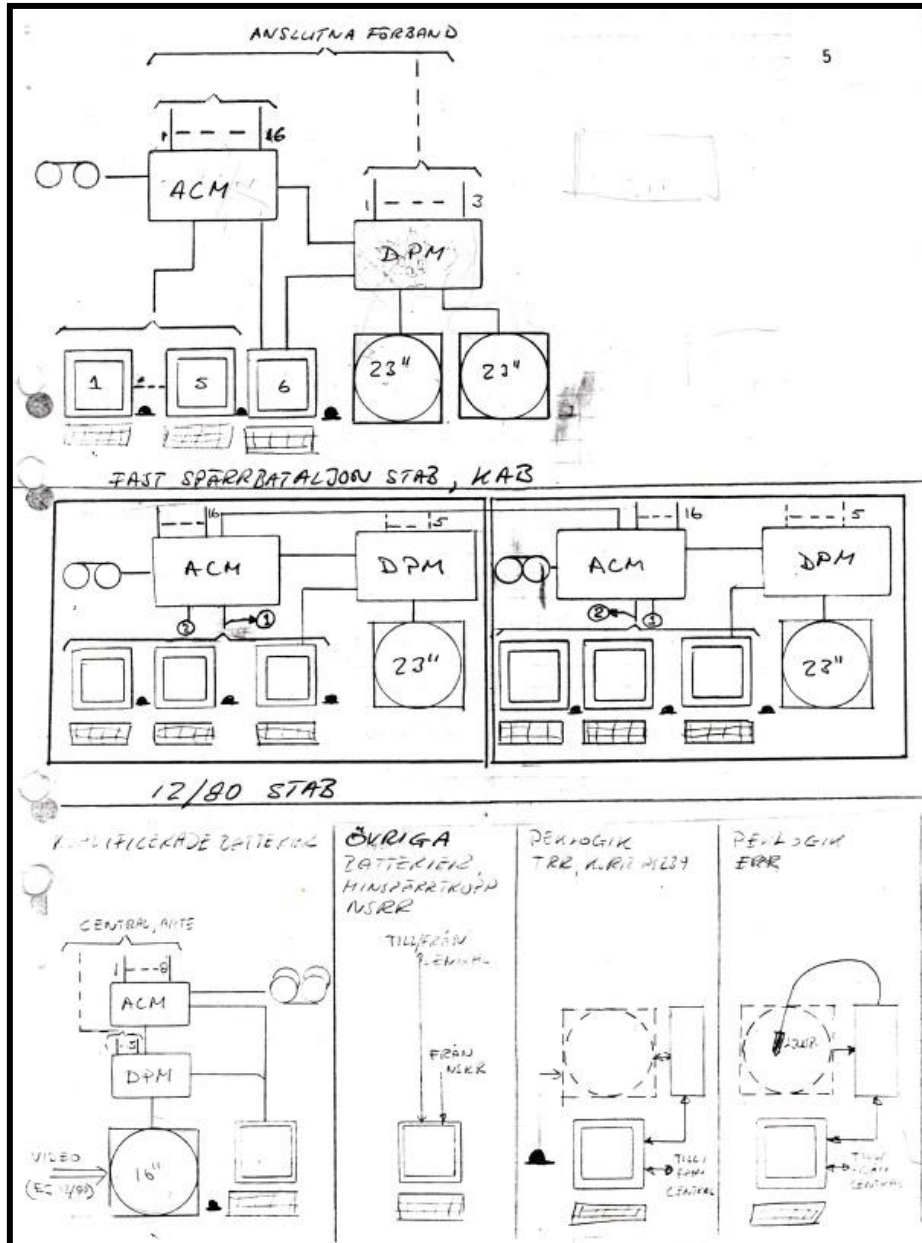 ANSLUTNA FÖRBAND
5
1 16
ACM
1 3
DPM
1 5 6 23" 23"
FAST SPÄRRBATALJON STAB, KAB
16 5 16 5
ACM DPM ACM DPM
2 1 2 1
23" 23"
12/80 STAB
KVALIFICERADE BATTERIER
CENTRAL, ARTE
1 8
ACM
5
DPM
VIDEO
16"
ÖVRIGA
BATTERIER,
MINSPÄRRTROPP
NSRR
TILL/FRÅN
CENTRAL
FRÅN
NSRR
PEKLOGIK
TILL/
FRÅN
CENTRAL
PEKLOGIK
ERR
TILL/
FRÅN
CENTRAL